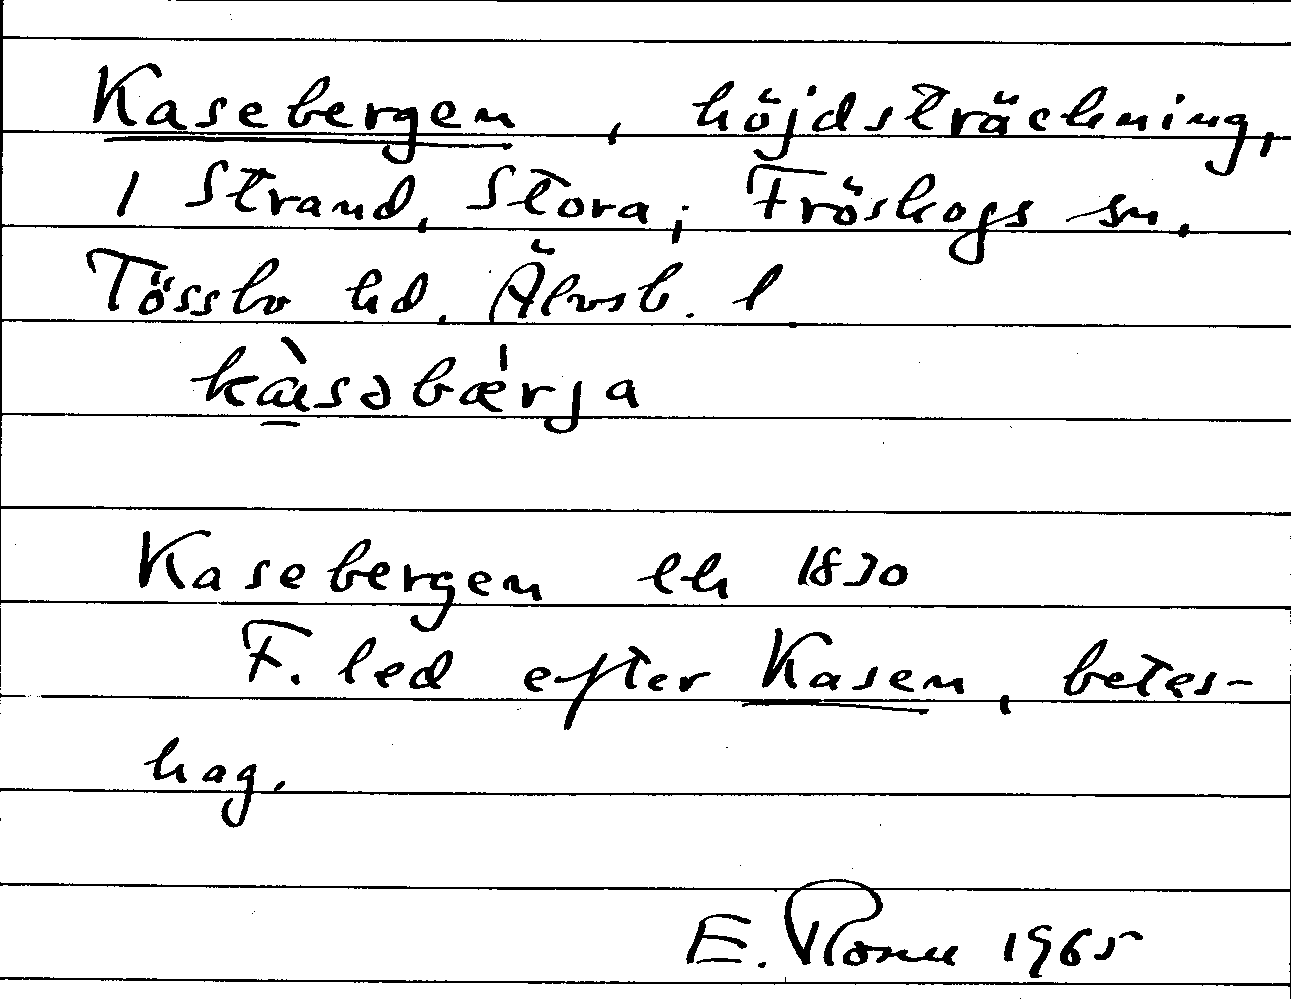 Kasebergen, höjdsträckning,
i Strand, Stora; Fröskogs sn.
Tössbo hd. Älvsb. l
kàsəbæ̀rja
Kasebergen lh 1830
F. led efter Kasen, betes-
hag.
E. 1965